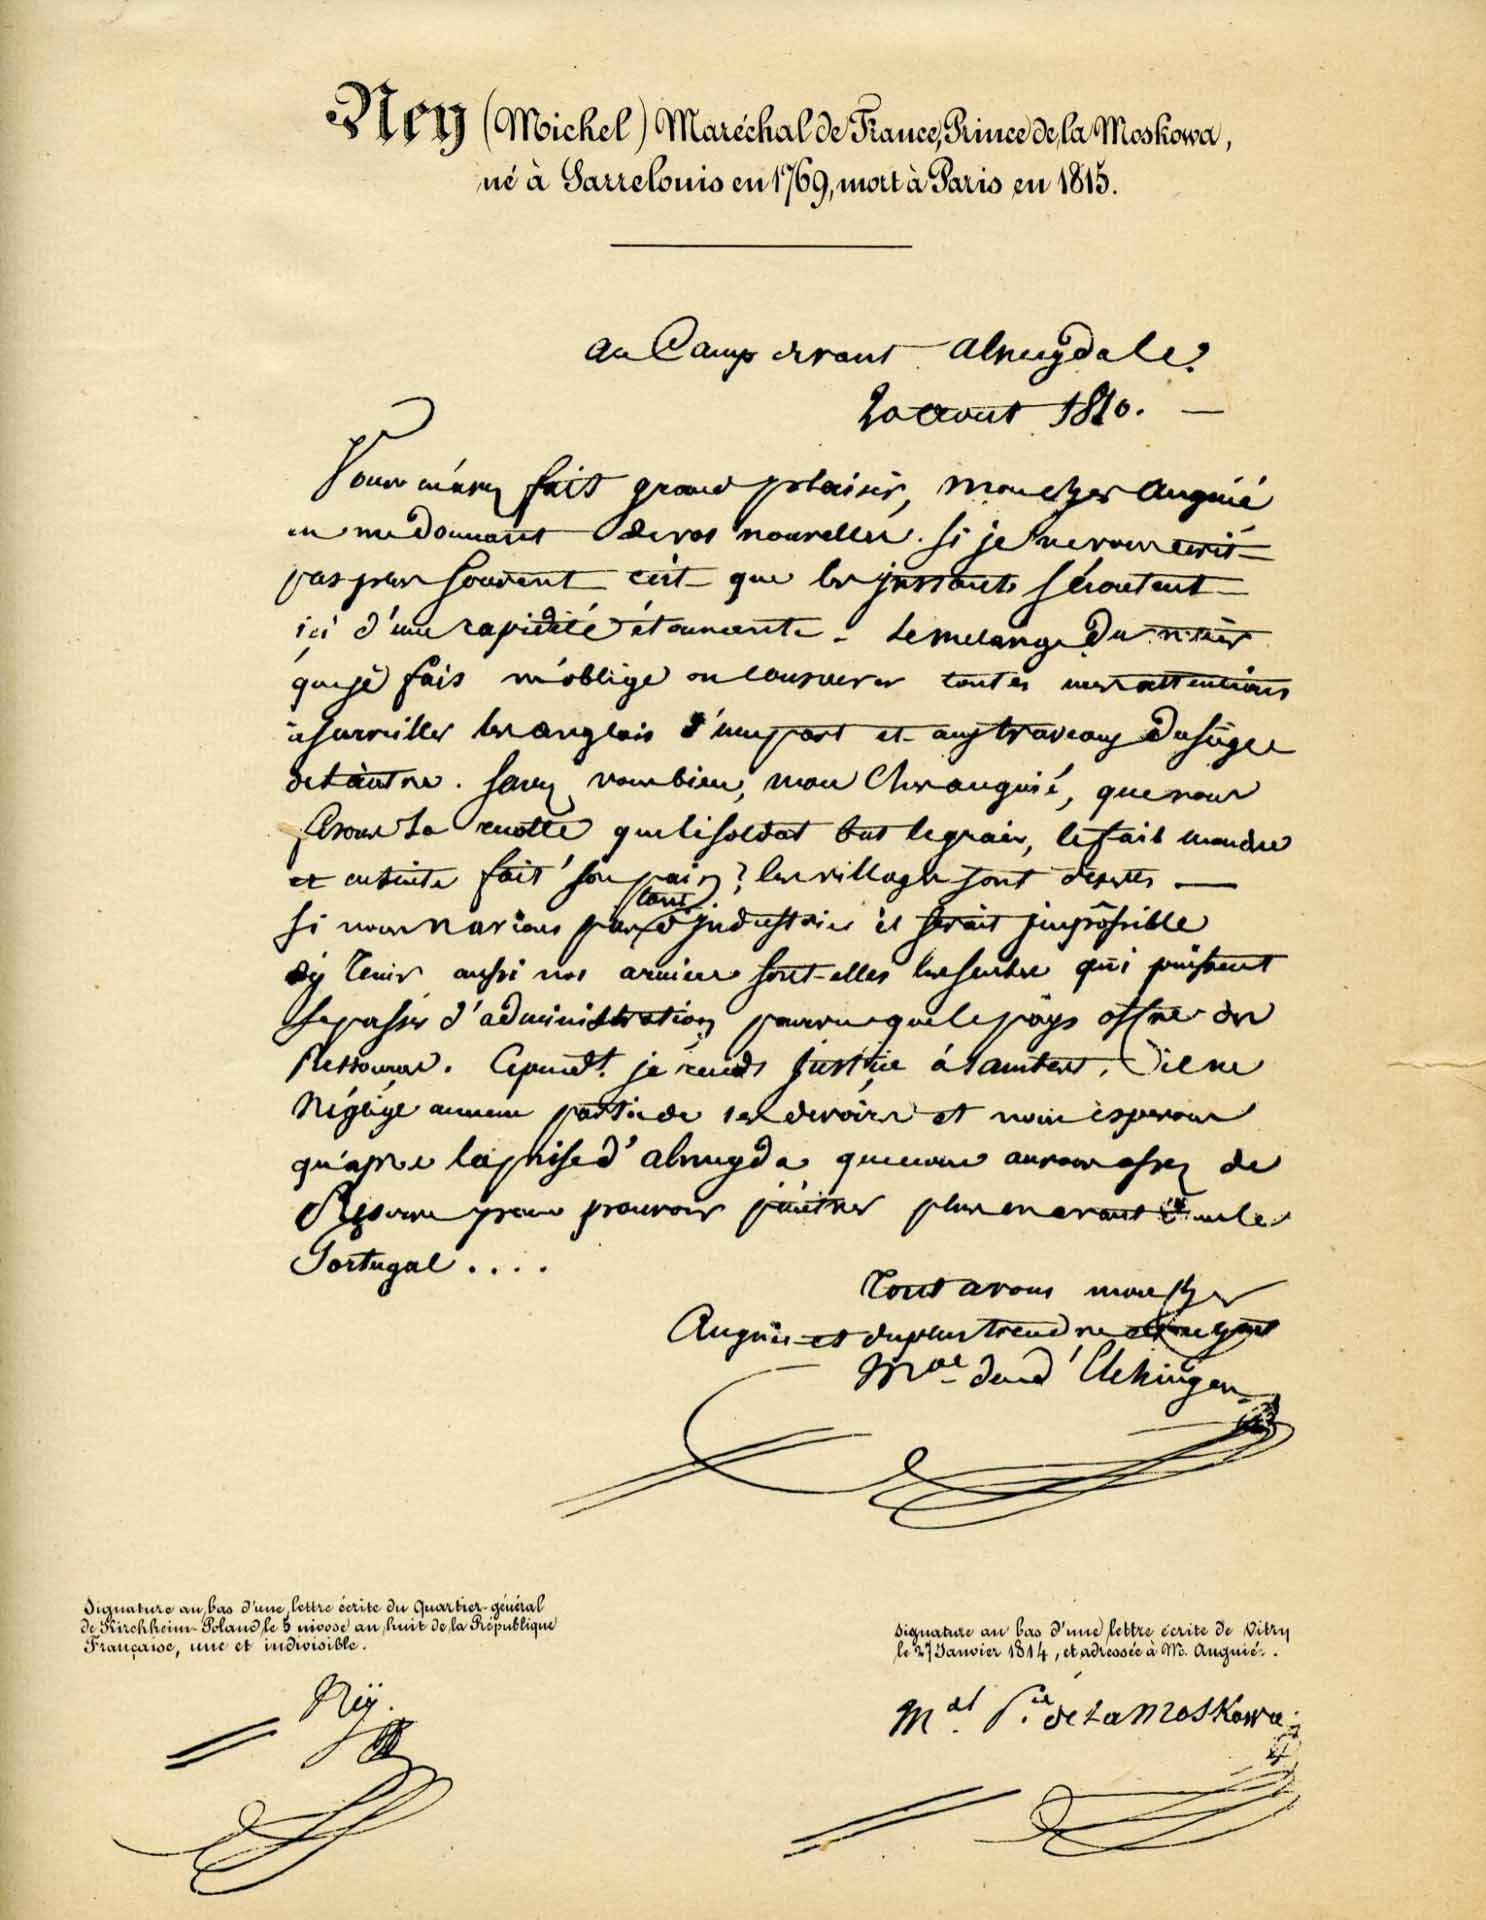 Ney (Michel) Maréchal de France, Prince de la Moskowa,
né à Sarrelouis en 1769, mort à Paris en 1815.
au Camp devant almeyda le
20 aout 1810. —
Vous m'avez fait grand plaisir, mon cher auguié
en me donnant de vos nouvelles. Si je ne vous ecrit
pas plus souvent c'est que les jnstants s'écoulent
ici d'une rapidité étonnante. Le melange du métier
que je fais m'oblige à consacrer toutes mes attentions
à surveiller les anglais d'une part et aux travaux du siége
de l'autre. Savez vous bien, mon cher auguié, que nous
fesons la recolte que le soldat bat le grain, le fait moudre
et ensuite fait son pain? les villages sont deserts —
Si nous n'avions pas tant d'jndustrie il serait jmpossible
d'y tenir aussi nos armées sont-elles les seules qui puissent
se passer d'administration pourvu que le pays offre des
Ressources. Cependt. je rends justice à Lambert, il ne
Néglige aucune partie de ses devoirs et nous esperons
qu'après la prise d'almeyda que nous aurons assez de
Réserve pour pouvoir pénétrer plus en avant dans le
Portugal . . . .
Tout à vous mon cher
Auguié et du plus tendre
Mal duc d'Elchingen
Signature au bas d'une lettre écrite du Quartier-général
de Kirchheim-Poland, le 5 nivose an huit de la République
Française, une et indivisible.
Ney.
Signature au bas d'une lettre écrite de Vitry
le 27 Janvier 1814, et adressée à M. Auguié.
Mal. P.ce de la Moskowa